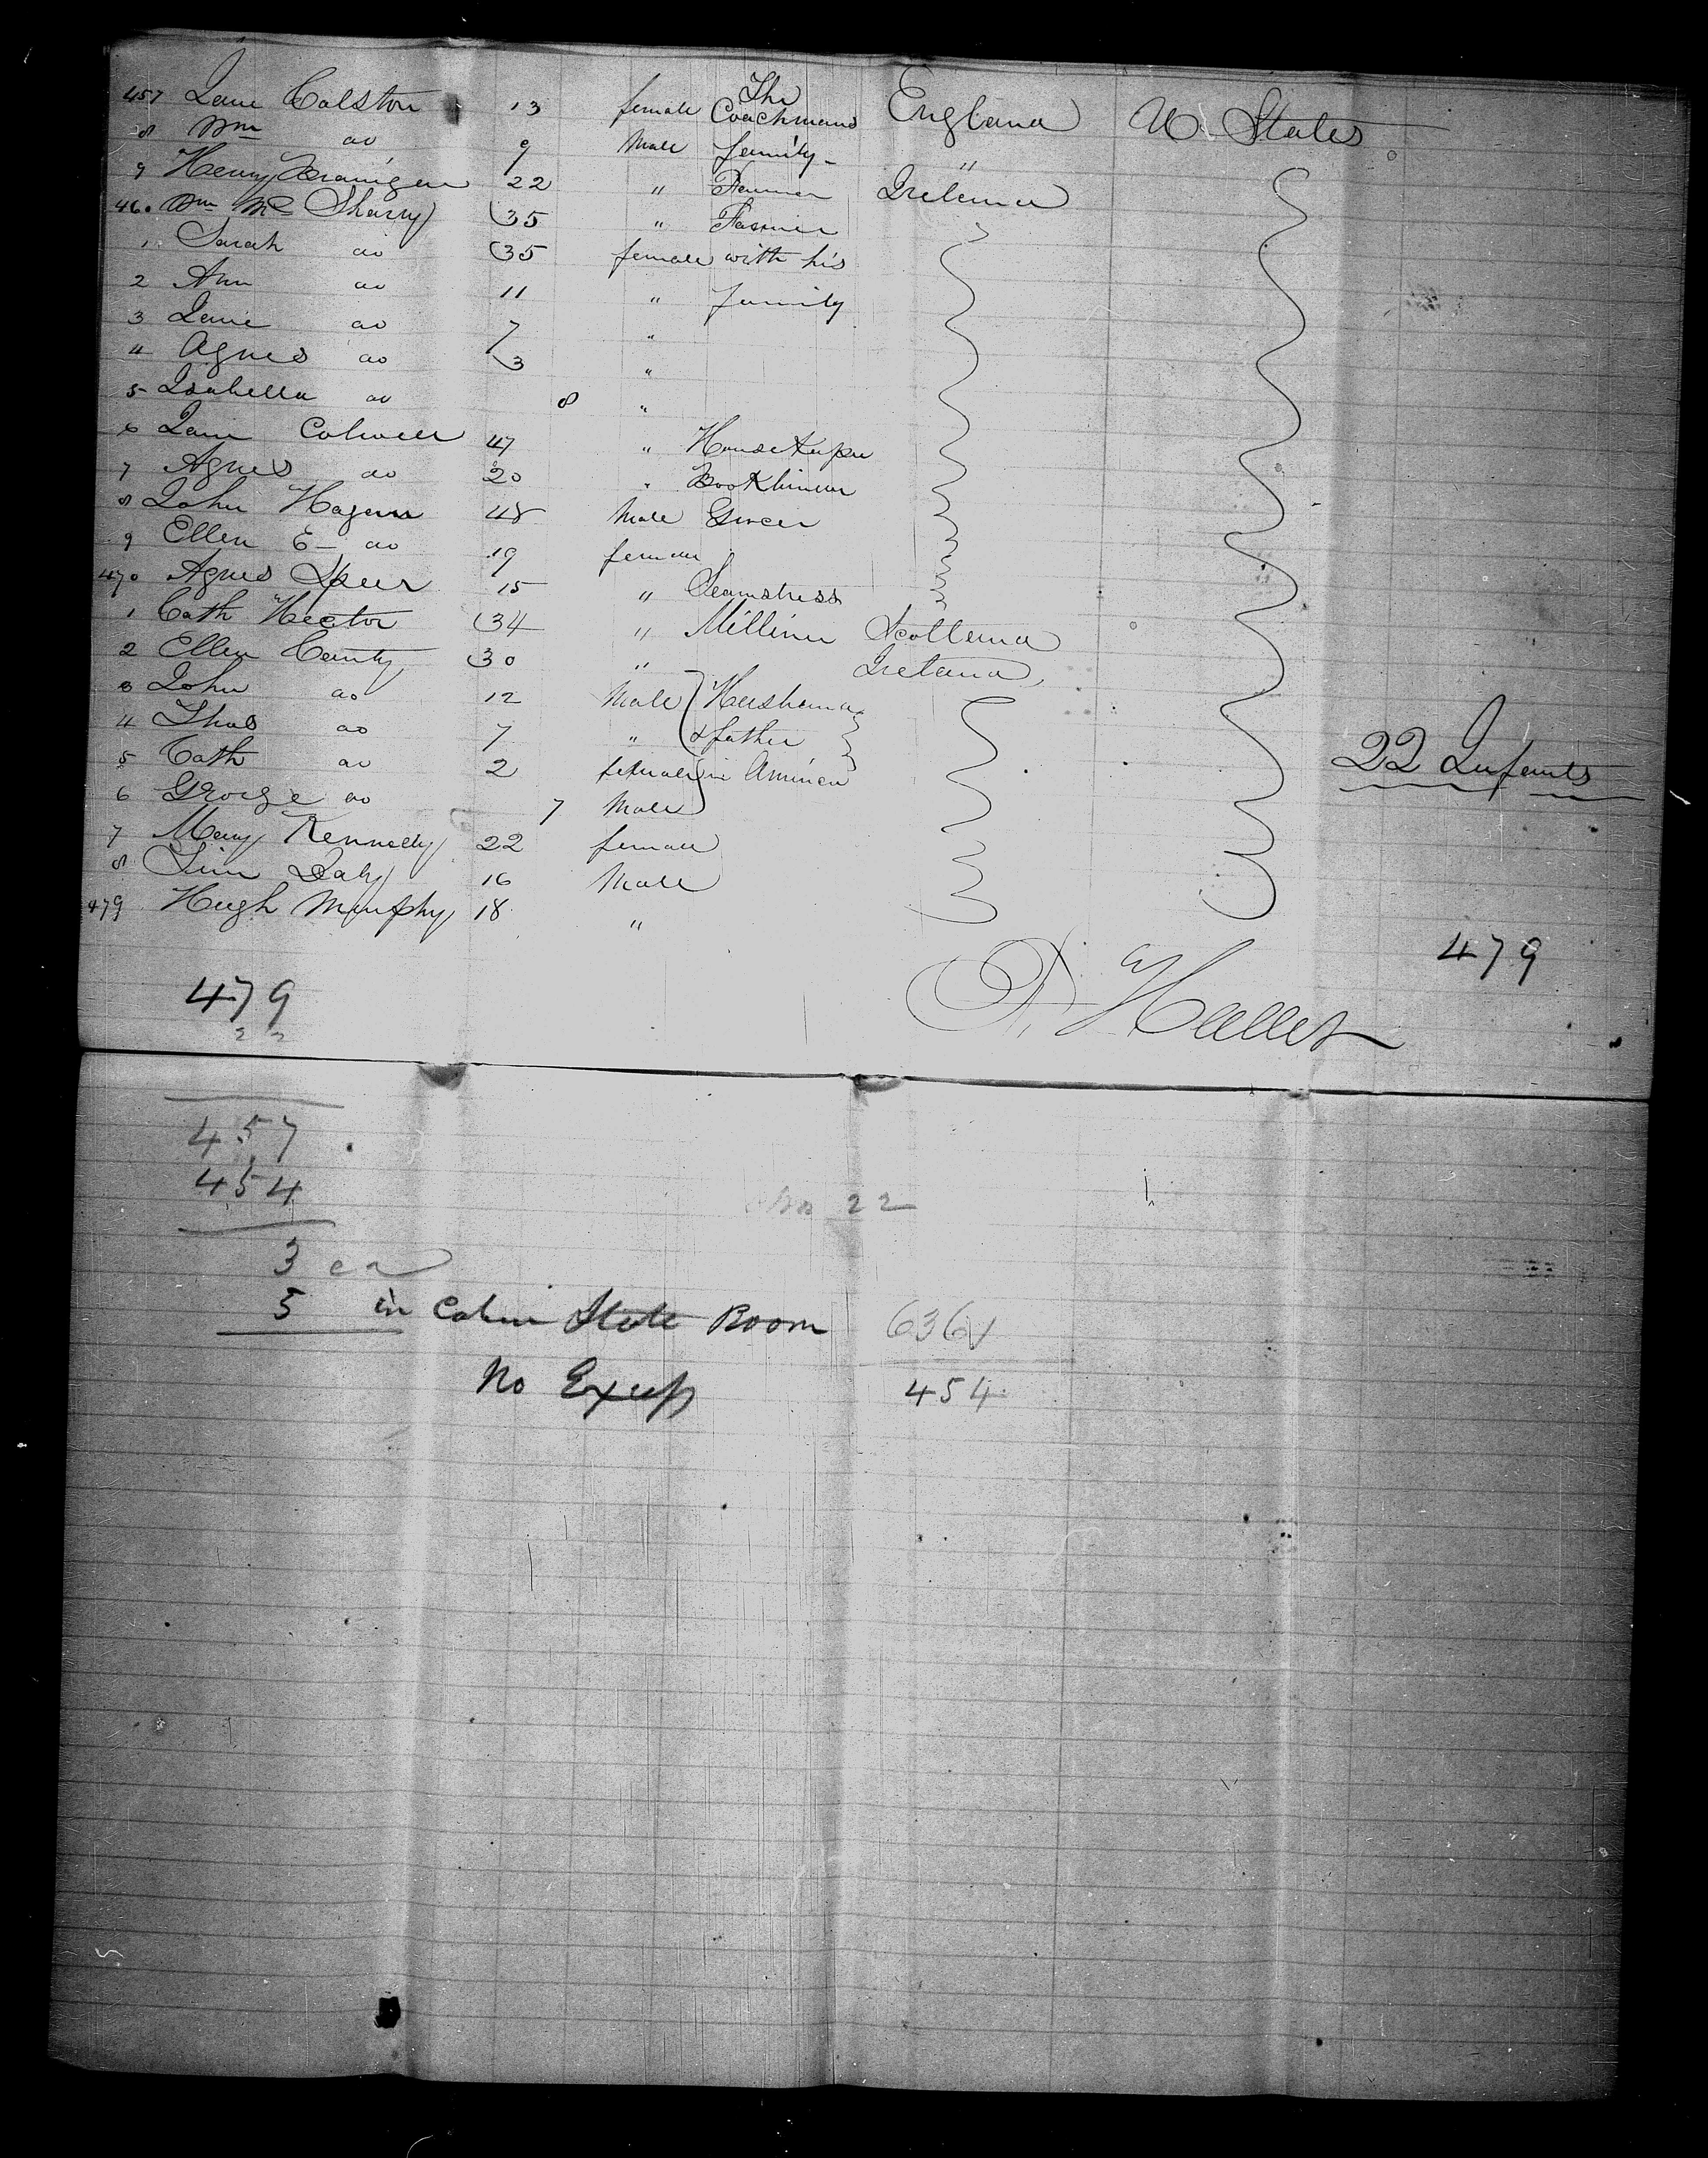 457 Jane Colston 13 female The Coachmans England U States
8 Wm do 9 Male family - "
9 Henry Branigan 22 " Farmer Ireland
460 Wm Mc Sharry 35 " Farmer
1 Sarah do 35 female with his
2 Ann do 11 " family
3 Jane do 7 "
4 Agnes do 3 "
5 Isabella do 8 "
6 Jane Colwell 47 " House Keeper
7 Agnes do 20 " Book binder
8 John Hagan 48 Male Grocer
9 Ellen E- do 19 female
470 Agnes Speer 15 " Seamstress
1 Cath Hector 34 " Milliner Scotland
2 Ellen 30 " Ireland
3 John do 12 Male Husband
4 Thos do 7 " & father
5 Cath do 2 female in America
22 Infants
6 George do 7 Male
7 Mary Kennedy 22 female
8 Tim Daly 16 Male
479 Hugh Murphy 18 "
479
479
22
457
454
22
3
5 in Cabin State Room 636
No Excess 454